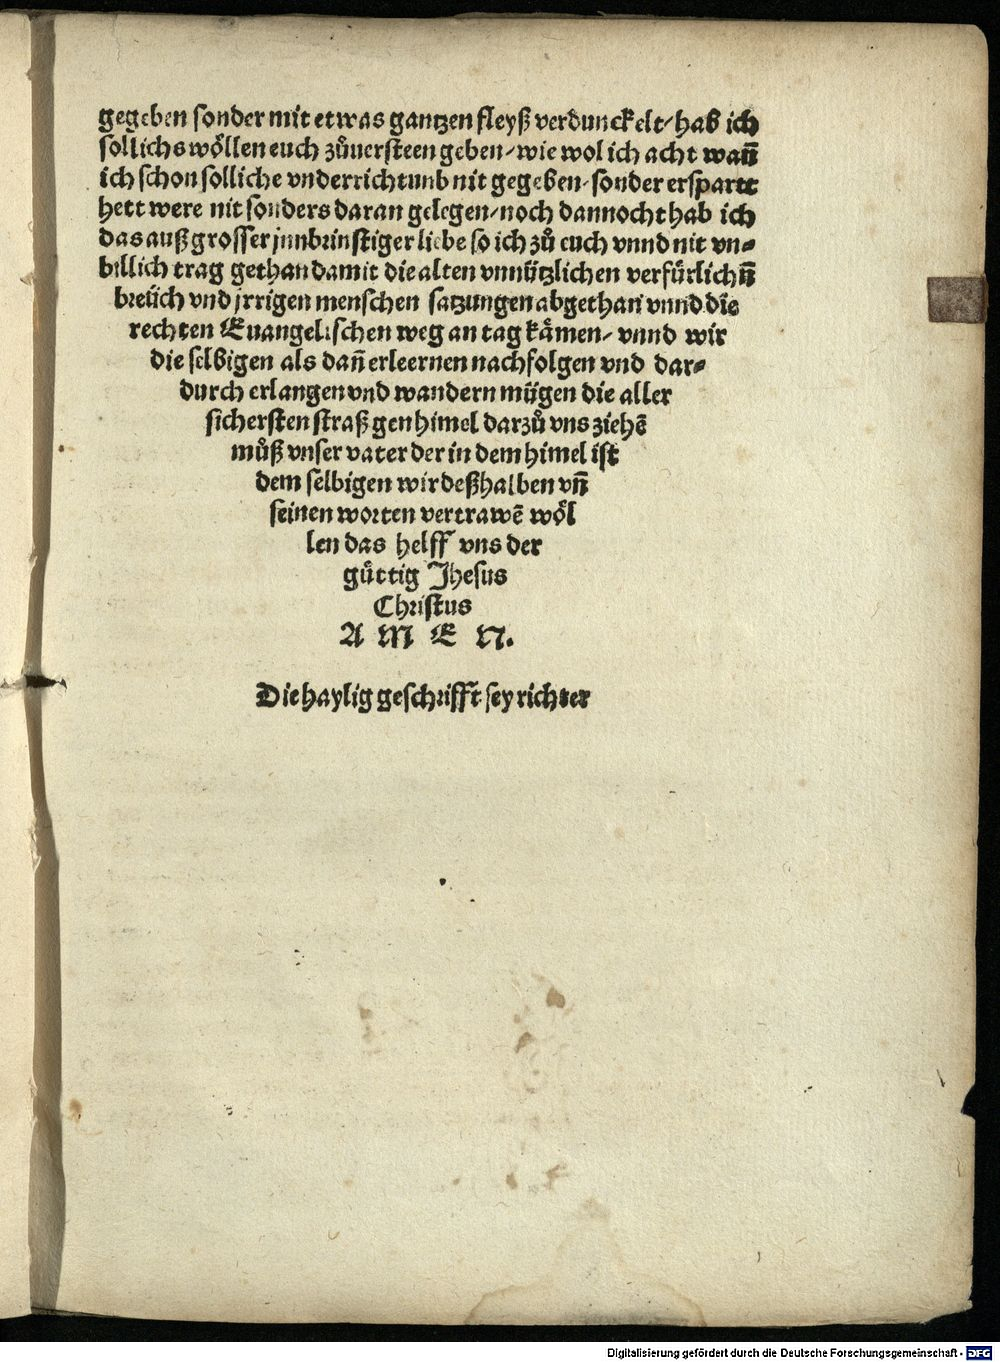 gegeben sonder mit etwas gantzen fleyß verdunckelt/ hab ich
sollichs wöllen euch zůuersteen geben/ wie wol ich acht wañ
ich schon solliche vnderrichtunb nit gegeben/ sonder ersparet
hett were nit sonders daran gelegen/ noch dannocht hab ich
das auß grosser jnnbrinstiger liebe so ich zů euch vnnd nit vn⸗
billich trag gethan damit die alten vnnützlichen verfürlichñ
breüch vnd jrrigen menschen satzungen abgethan vnnd die
rechten Euangelischen weg an tag kämen/ vnnd wir
die selbigen als dañ erleernen nachfolgen vnd dar⸗
durch erlangen vnd wandern mügen die aller
sichersten straß gen himel darzů vns ziehē
můß vnser vater der in dem himel ist
dem selbigen wir deßhalben vñ
seinen worten vertrawē wöl
len das helff vns der
güttig Jhesus
Christus
A M E N.
Die haylig geschrifft sey richter
Digitalisierung gefördert durch die Deutsche Forschungsgemeinschaft - DFG